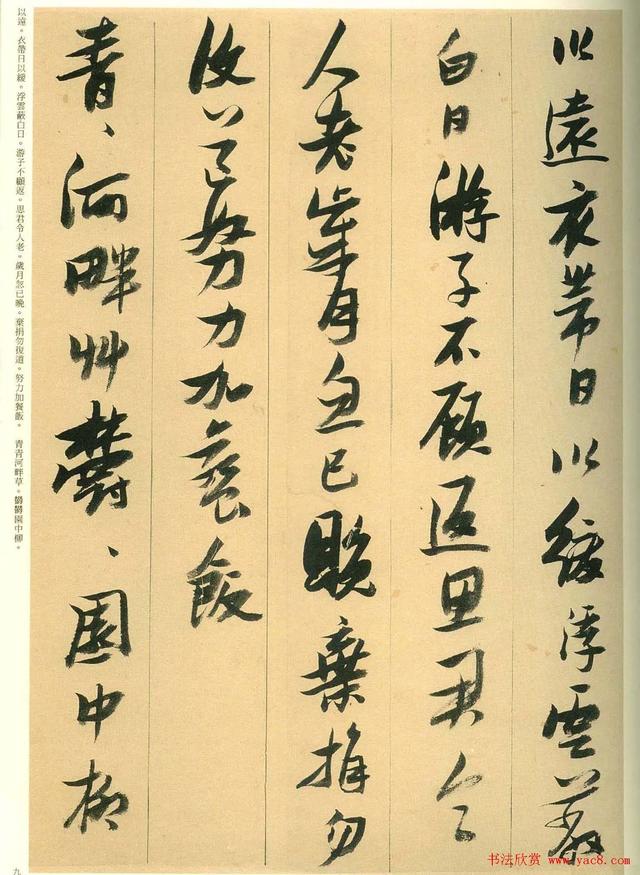 以遠衣帶日以緩浮雲蔽
白日游子不顧返思君令
人老歲月忽已晚棄捐勿
復道努力加餐飯
青青河畔艸鬱鬱園中柳
以遠。衣帶日以緩。浮雲蔽白日。游子不顧返。思君令人老。歲月忽已晚。棄捐勿復道。努力加餐飯。　青青河畔草。鬱鬱園中柳。
九
书法欣赏 www.yac8.com